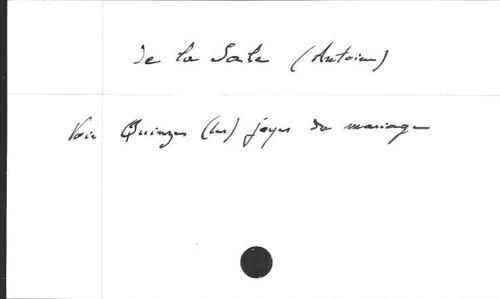 De la Sale (Antoine)
Voir Quinzes (les) joyes du mariage